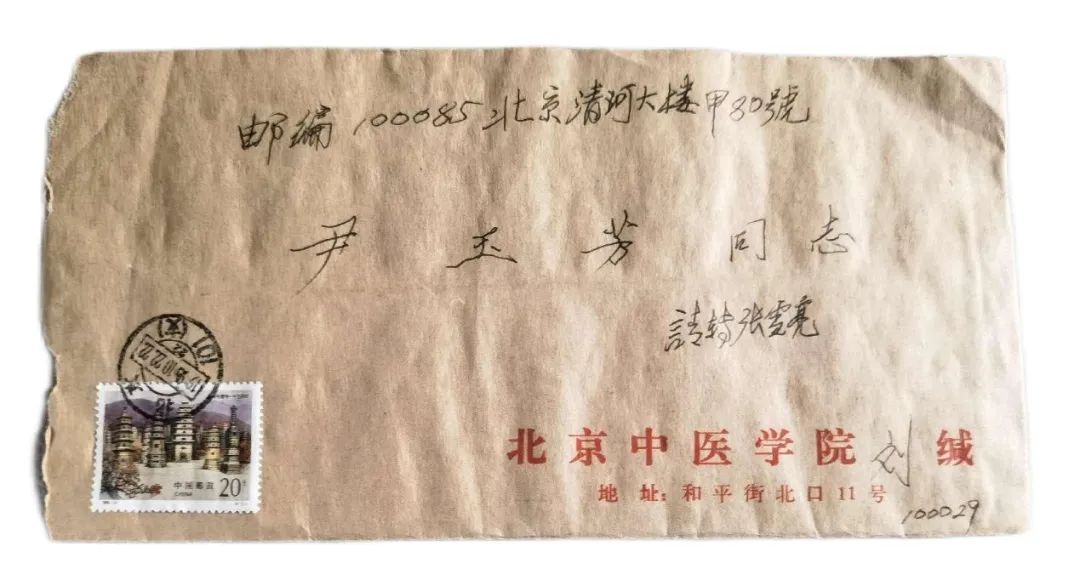 邮编 100085 北京清河大楼甲80號
尹玉芳同志
請转张雪亮
北京中医学院 刘 缄
地址:和平街北口11号
100029
中国邮政
CHINA
20分